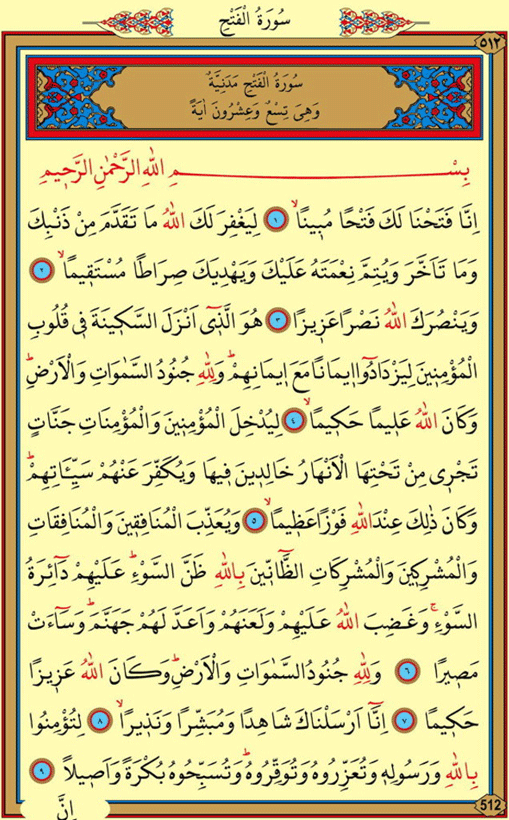 سُورَةُ الْفَتْحِ
٥١٢
سُورَةُ الْفَتْحِ مَدَنِيَّةٌ
وَهِىَ تِسْعٌ وَعِشْرُونَ اٰيَةً
بِسْمِ اللّٰهِ الرَّحْمٰنِ الرَّح۪يمِ
اِنَّا فَتَحْنَا لَكَ فَتْحًا مُب۪ينًاۙ ١ لِيَغْفِرَ لَكَ اللّٰهُ مَا تَقَدَّمَ مِنْ ذَنْبِكَ
وَمَا تَاَخَّرَ وَيُتِمَّ نِعْمَتَهُ عَلَيْكَ وَيَهْدِيَكَ صِرَاطًا مُسْتَق۪يمًاۙ ٢
وَيَنْصُرَكَ اللّٰهُ نَصْرًا عَز۪يزًا ٣ هُوَ الَّذ۪ٓى اَنْزَلَ السَّك۪ينَةَ ف۪ى قُلُوبِ
الْمُؤْمِن۪ينَ لِيَزْدَادُٓوا ا۪يمَانًا مَعَ ا۪يمَانِهِمْۜ وَلِلّٰهِ جُنُودُ السَّمٰوَاتِ وَالْاَرْضِۜ
وَكَانَ اللّٰهُ عَل۪يمًا حَك۪يمًاۙ ٤ لِيُدْخِلَ الْمُؤْمِن۪ينَ وَالْمُؤْمِنَاتِ جَنَّاتٍ
تَجْر۪ى مِنْ تَحْتِهَا الْاَنْهَارُ خَالِد۪ينَ ف۪يهَا وَيُكَفِّرَ عَنْهُمْ سَيِّـَٔاتِهِمْۜ
وَكَانَ ذٰلِكَ عِنْدَ اللّٰهِ فَوْزًا عَظ۪يمًاۙ ٥ وَيُعَذِّبَ الْمُنَافِق۪ينَ وَالْمُنَافِقَاتِ
وَالْمُشْرِك۪ينَ وَالْمُشْرِكَاتِ الظَّٓانّ۪ينَ بِاللّٰهِ ظَنَّ السَّوْءِۜ عَلَيْهِمْ دَٓائِرَةُ
السَّوْءِۚ وَغَضِبَ اللّٰهُ عَلَيْهِمْ وَلَعَنَهُمْ وَاَعَدَّ لَهُمْ جَهَنَّمَۜ وَسَٓاءَتْ
مَص۪يرًا ٦ وَلِلّٰهِ جُنُودُ السَّمٰوَاتِ وَالْاَرْضِۜ وَكَانَ اللّٰهُ عَز۪يزًا
حَك۪يمًا ٧ اِنَّٓا اَرْسَلْنَاكَ شَاهِدًا وَمُبَشِّرًا وَنَذ۪يرًاۙ ٨ لِتُؤْمِنُوا
بِاللّٰهِ وَرَسُولِه۪ وَتُعَزِّرُوهُ وَتُوَقِّرُوهُۜ وَتُسَبِّحُوهُ بُكْرَةً وَاَص۪يلًا ٩
اِنَّ
512